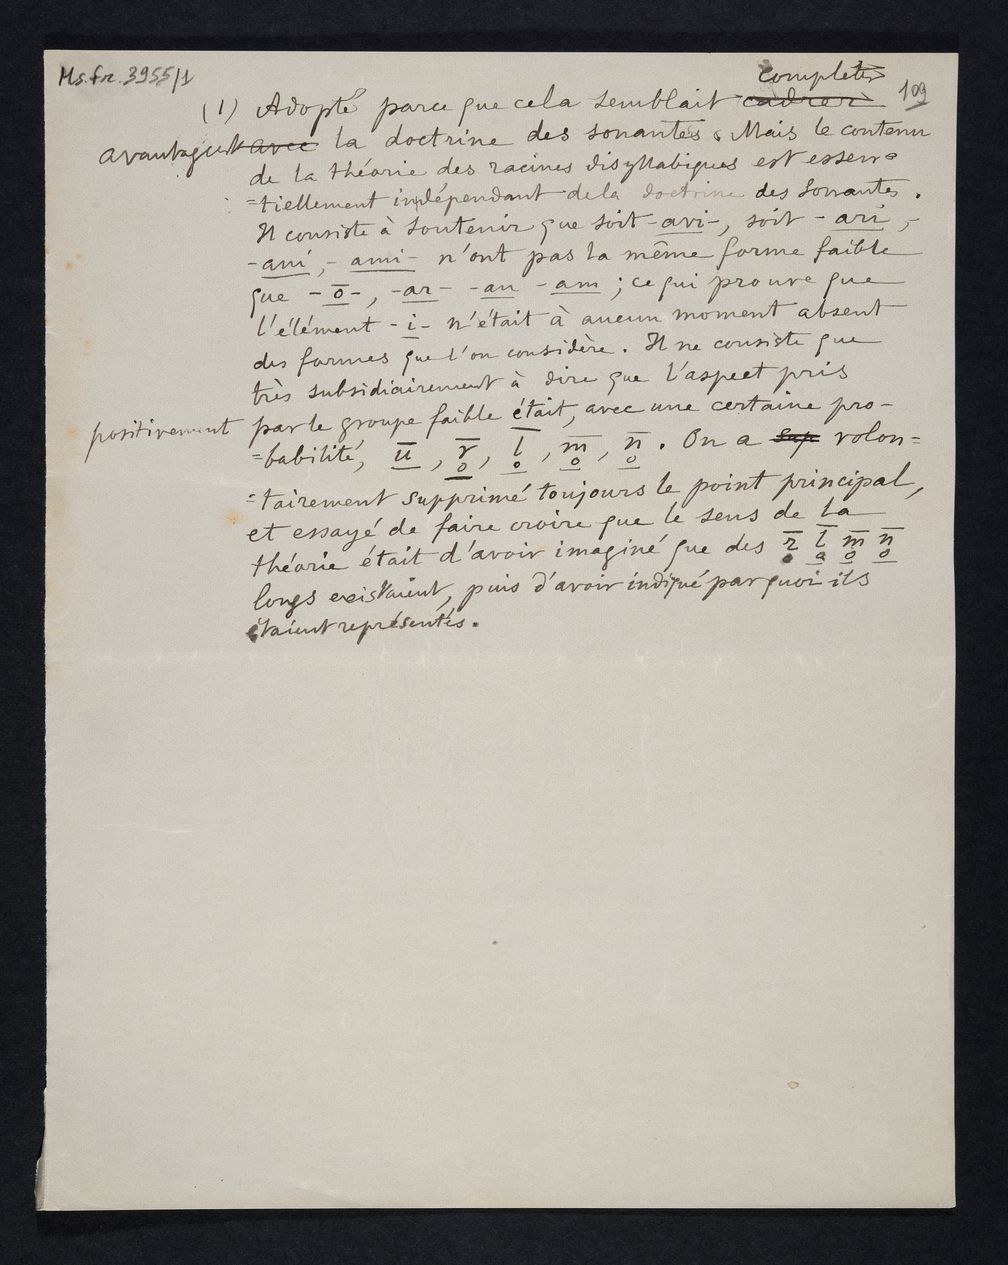 Ms.fr. 3955/1
109
compléter
(1) Adopté parce que cela semblait cadrer
avantageust avec la doctrine des sonantes. Mais le contenu
de la théorie des racines disyllabiques est essen=
=tiellement indépendant de la doctrine des sonantes.
Il consiste à soutenir que soit -avi-, soit -ari-,
-ani, -ami- n'ont pas la même forme faible
que -ō-, -ar- -an -am; ce qui prouve que
l'élément -i- n'était à aucun moment absent
des formes que l'on considère. Il ne consiste que
très subsidiairement à dire que l'aspect pris
positivement par le groupe faible était, avec une certaine pro-
=babilité, ū, r̥̄, l̥̄, m̥̄, n̥̄. On a sup volon=
=tairement supprimé toujours le point principal,
et essayé de faire croire que le sens de la
théorie était d'avoir imaginé que des r̥̄ l̥̄ m̥̄ n̥̄
longs existaient, puis d'avoir indiqué par quoi ils
étaient représentés.